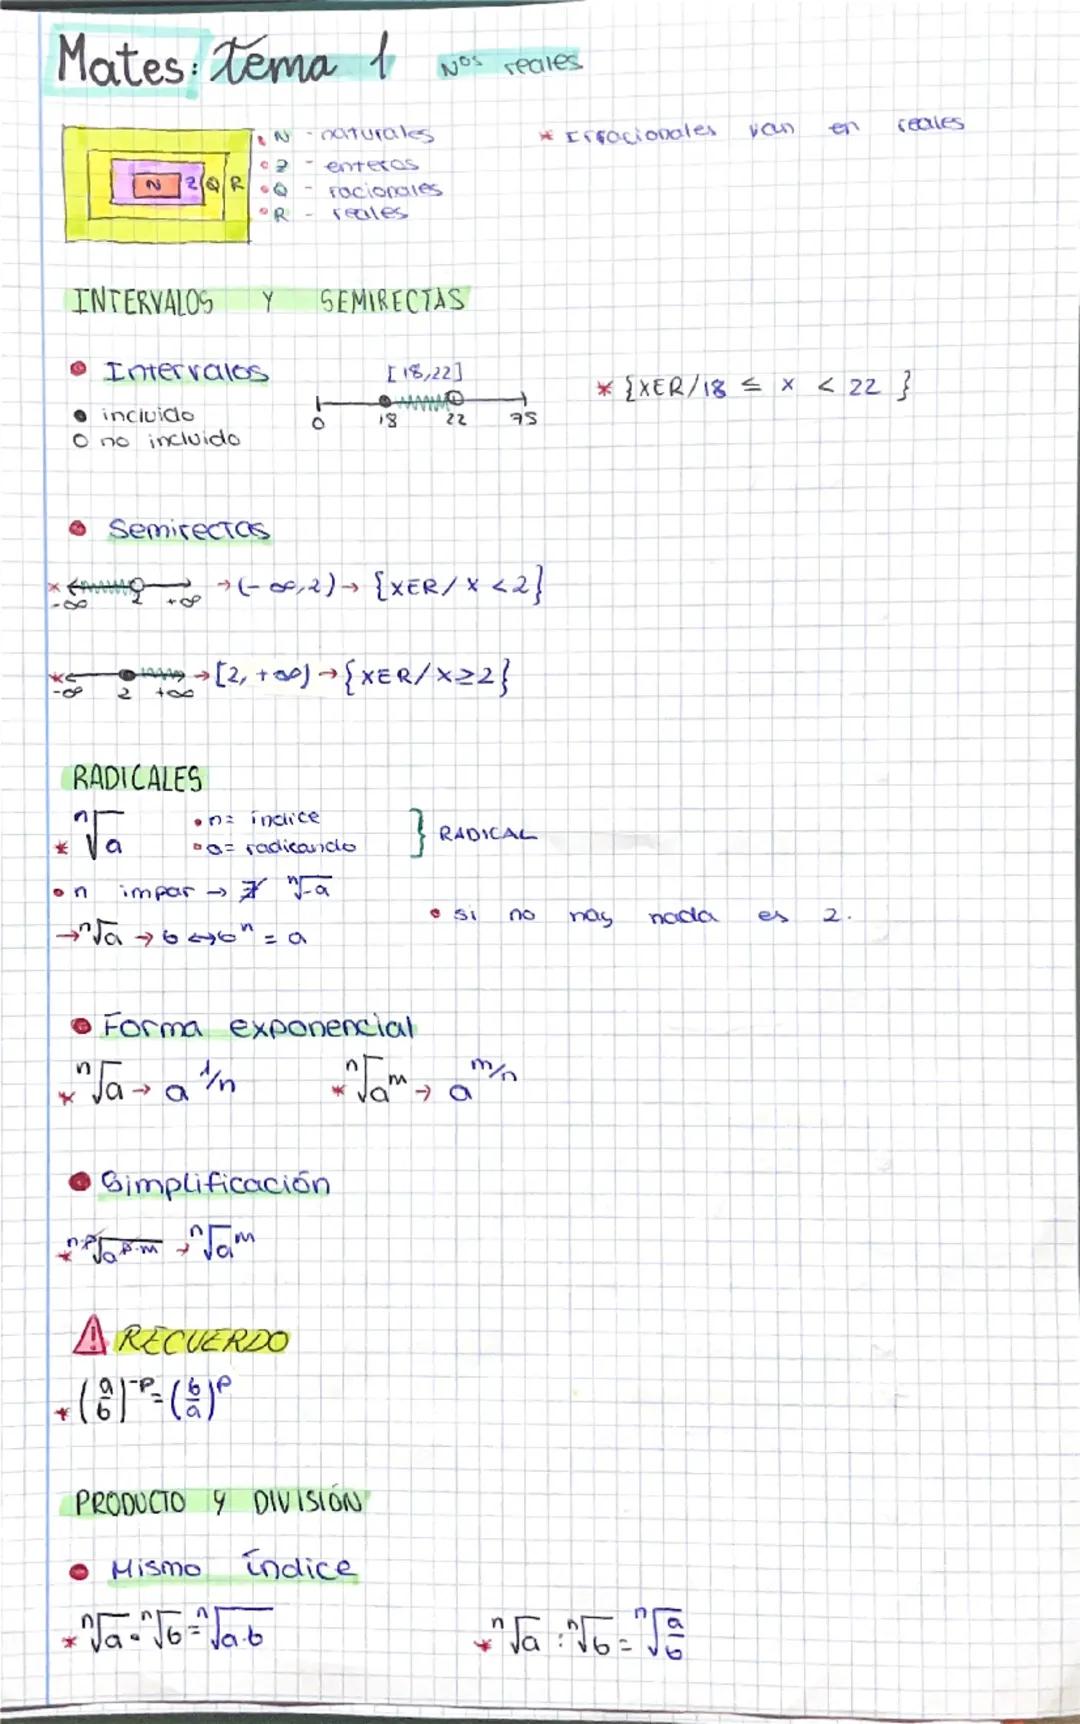 Mates: tema 1 Nºs reales
N Z Q R
• N - naturales
• Z - enteros
• Q - racionales
• R - reales
* Irracionales van en reales
INTERVALOS Y SEMIRECTAS
• Intervalos
● incluido
○ no incluido
[18,22]
0 18 22 75
* {XER/18 ≤ x < 22 }
• Semirectas
* -∞ 2 +∞ → (-∞,2) → {XER/ X <2}
* -∞ 2 +∞ → [2, +∞) → {XER/X≥2}
RADICALES
* ⁿ√a
• n= índice
• a= radicando
} RADICAL
• n impar → ∄ ⁿ√-a
→ ⁿ√a → b ↔ bⁿ = a
• si no hay nada es 2.
• Forma exponencial
* ⁿ√a → a^1/n * ⁿ√a^m → a^m/n
• Simplificación
* ⁿ·ᵖ√a^p·m → ⁿ√a^m
⚠ RECUERDO
* (a/b)^-p = (b/a)^p
PRODUCTO Y DIVISIÓN
• Mismo índice
* ⁿ√a · ⁿ√b = ⁿ√a·b * ⁿ√a : ⁿ√b = ⁿ√a/b